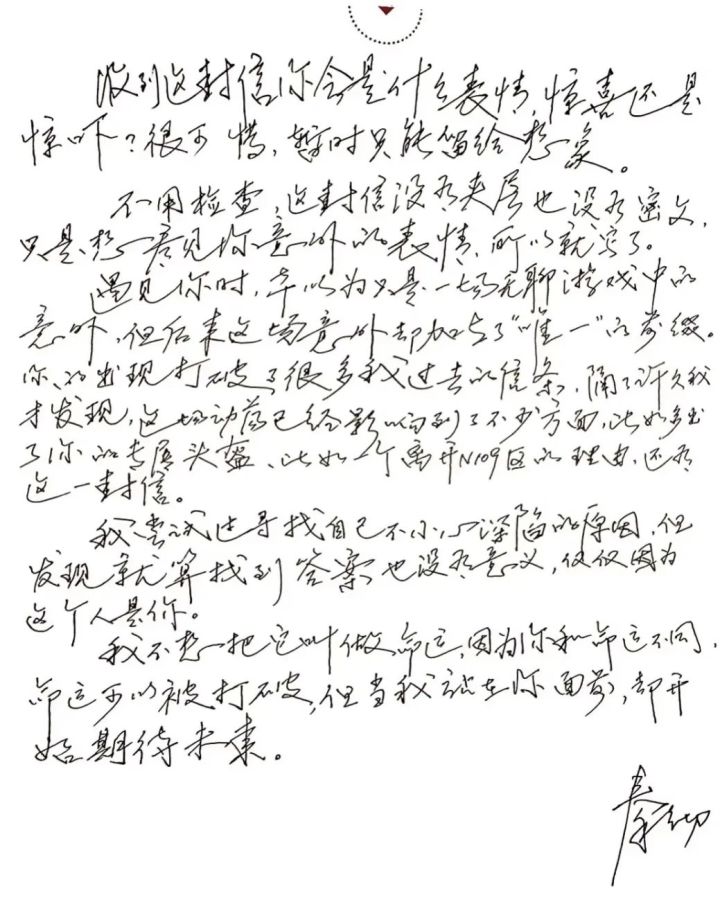 收到这封信你会是什么表情,惊喜还是
惊吓?很可惜,暂时只能留给想象。
不用检查,这封信没有夹层也没有密文,
只是想看见你意外的表情,所以就写了。
遇见你时,本以为只是一场无聊游戏中的
意外,但后来这场意外却加上了“唯一”的前缀。
你的出现打破了很多我过去的信条,隔了许久我
才发现,这场动荡已经影响到了不少方面,比如多出
了你的专属头盔、比如一个离开N109区的理由,还有
这一封信。
我尝试过寻找自己不小心深陷的原因,但
发现就算找到答案也没有意义,仅仅因为
这个人是你。
我不想把它叫做命运,因为你和命运不同,
命运可以被打破,但当我站在你面前,却开
始期待未来。
秦彻